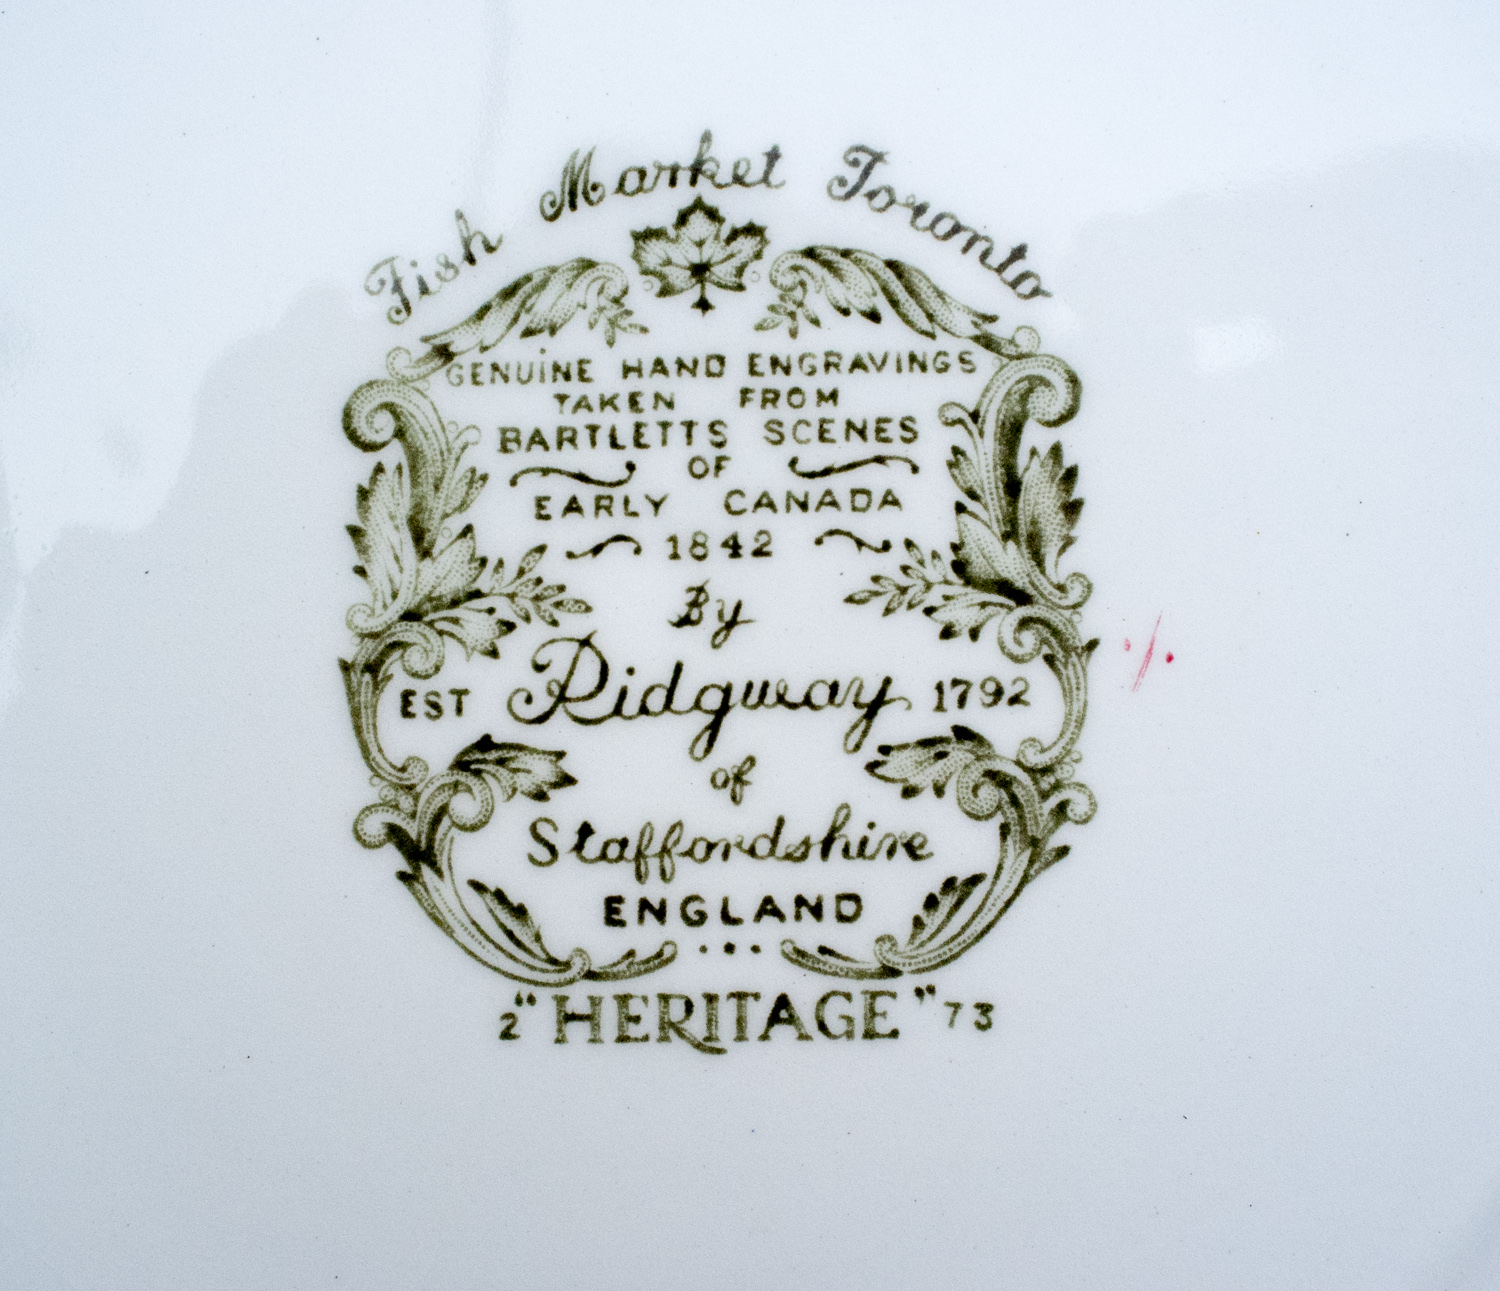 Fish Market Toronto
GENUiNE HAND ENGRAVINGS
TAKEN FROM
BARTLETTS SCENES
OF
EARLY CANADA
1842
By
EST Ridgway 1792
of
Staffordshire
ENGLAND
2 "HERITAGE" 73